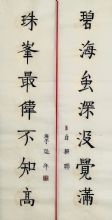 碧海虽深沒覺滿
珠峯最偉不知高